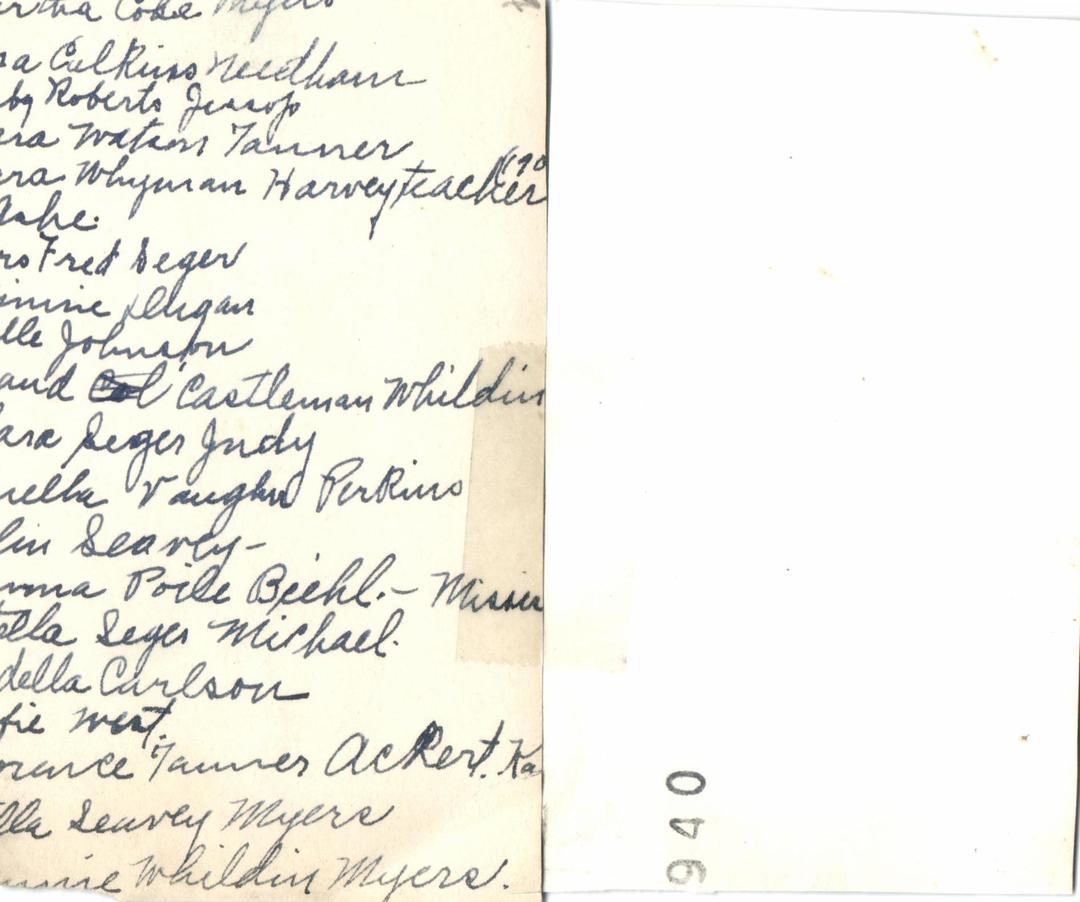 rtha Cobe Myers
ra Calkins Needham
by Roberts Jessop
ara Watson Tanner
ara Whyman Harvey teacher
Ashe.
rs Fred Seger
innie Dugan
elle Johnson
aud Castleman Whildin
lara Seger Judy
rella Vaughn Perkins
lin Seavey-
mma Poile Biehl. - Missou
tella Seger Michael.
della Carlson
fie West.
orance Tanner Ackert. Ka
lla Seavey Myers
innie Whildin Myers.
940